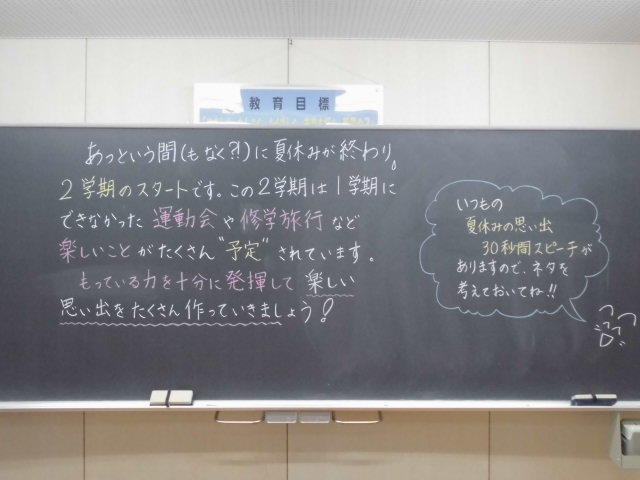 教育目標
あっという間(も なく⁈)に 夏休みが 終わり。
2学期のスタートです。この2学期は1学期に
できなかった 運動会 や 修学旅行 など
楽しいこと が たくさん "予定" されています。
もっている力を十分に発揮して 楽しい
思い出を たくさん 作っていきましょう!
いつもの
夏休みの思い出
30秒間スピーチが
ありますので、ネタを
考えておいてね!!